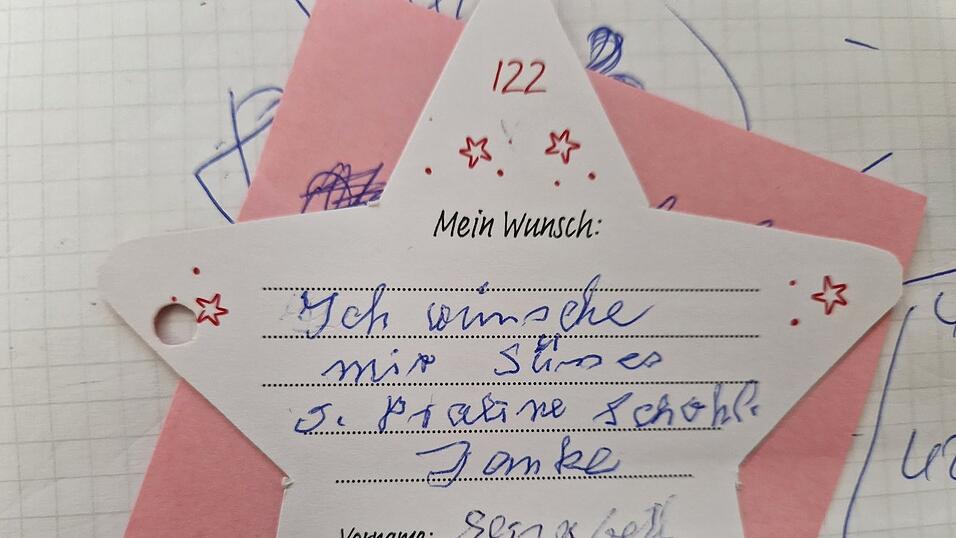 122
Mein Wunsch:
Ich wünsche
mir Süsses
z. Praline Schokl.
Danke
Vorname: